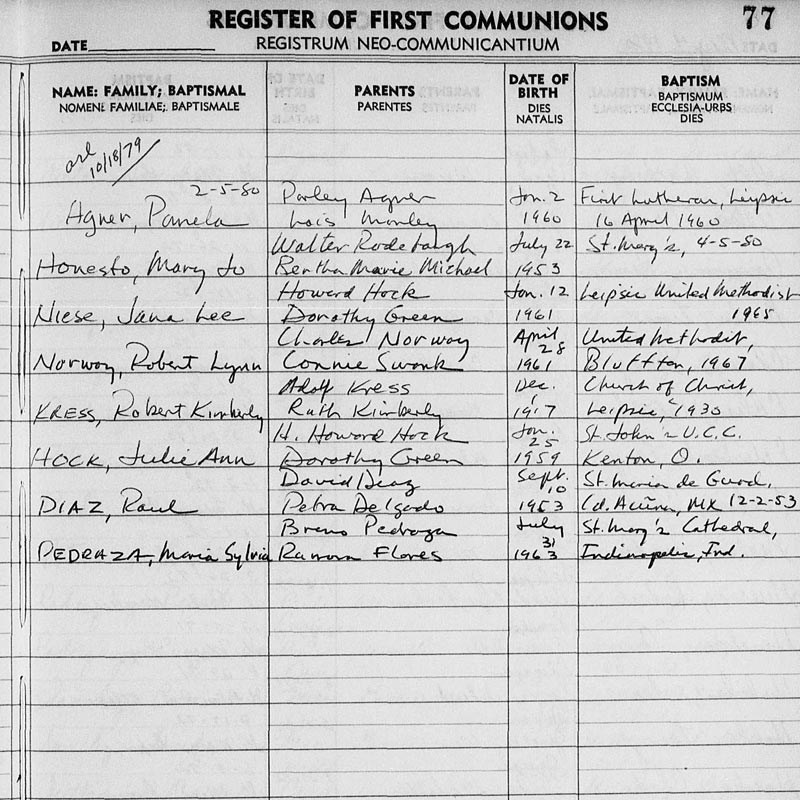 REGISTER OF FIRST COMMUNIONS 77
DATE REGISTRUM NEO-COMMUNICANTIUM
NAME: FAMILY; BAPTISMAL PARENTS DATE OF BIRTH BAPTISM
NOMEN: FAMILIAE; BAPTISMALE PARENTES DIES NATALIS BAPTISMUM ECCLESIA-URBS DIES
10/18/79
2-5-80 Parley Agner Jan. 2 First Lutheran, Leipsic
Agner, Pamela Lois Manley 1960 16 April 1960
Walter Rodebaugh July 22 St. Mary's, 4-5-80
Honesto, Mary Jo Bertha Marie Michael 1953
Howard Hock Jan. 12 Leipsic United Methodist
Niese, Jana Lee Dorothy Green 1961 1965
Charles Norway April 28 United Methodist,
Norway, Robert Lynn Connie Swank 1961 Bluffton, 1967
Adolf Kress Dec. Church of Christ,
KRESS, Robert Kimberly Ruth Kimberly 1917 Leipsic, 1930
H. Howard Hock Jan. 25 St. John's U.C.C.
HOCK, Julie Ann Dorothy Green 1959 Kenton, O.
David Diaz Sept. 10 St. Maria de Guad.
DIAZ, Raul Petra Delgado 1953 Cd. Acuña, MX 12-2-53
Bruno Pedraza July 31 St. Mary's Cathedral,
PEDRAZA, Maria Sylvia Ramona Flores 1963 Indianapolis, Ind.